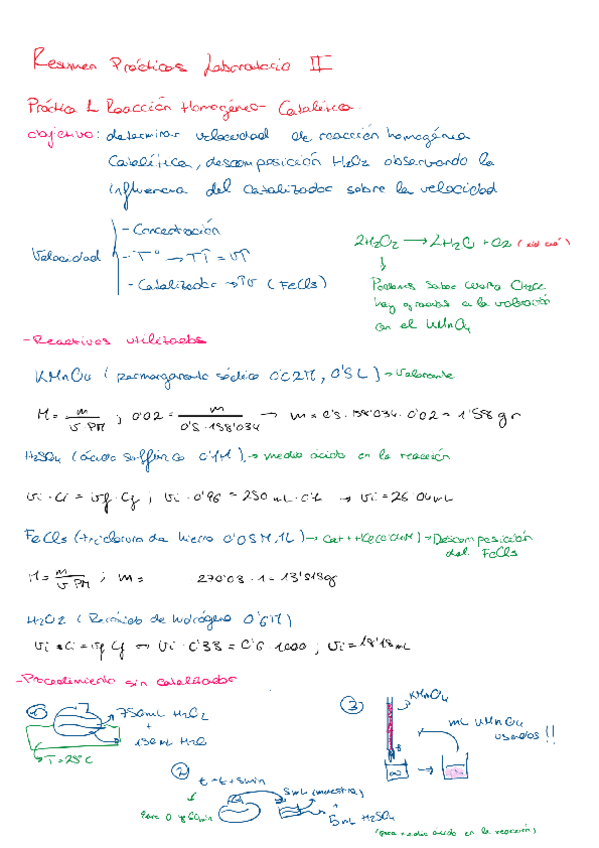 Resumen Prácticas Laboratorio II
Práctica 1 Reacción Homogénea- Catalítica.
objetivo: determinar velocidad de reacción homogénea
Catalítica, descomposición H2O2 observando la
influencia del catalizador sobre la velocidad
Velocidad
- Concentración
- Tº → T↑ = v↑
- Catalizador → ↑v (FeCl3)
2H2O2 → 2H2O + O2
Podemos saber cuanta
hay gracias a la valoración
con el KMnO4
- Reactivos utilizados
KMnO4 (permanganato sódico 0'02M, 0'5L) → Valorante
M = m / v·PM ; 0'02 = m / 0'5·158'034 → m = 0'5·158'034·0'02 = 1'58 gr
H2SO4 (ácido sulfúrico 0'1M) → medio ácido en la reacción
Vi·Ci = Vf·Cf ; Vi·0'96 = 250mL·0'1 → Vi = 26'04mL
FeCl3 (tricloruro de hierro 0'05M, 1L) → → Descomposición
del FeCl3
M = m / v·PM ; m = 270'03·1 = 13'515g
H2O2 (Peróxido de hidrógeno 0'6M)
Vi·Ci = Vf·Cf → Vi·0'33 = 0'6·1000 ; Vi = 18'18mL
- Procedimiento sin catalizador
① 750mL H2O2
+
150mL H2O
T = 25ºC
② t = t + 5min
Entre 0 y 60min
5mL (muestra)
5mL H2SO4
(para medio ácido en la reacción)
③ KMnO4
mL KMnO4
usados!!